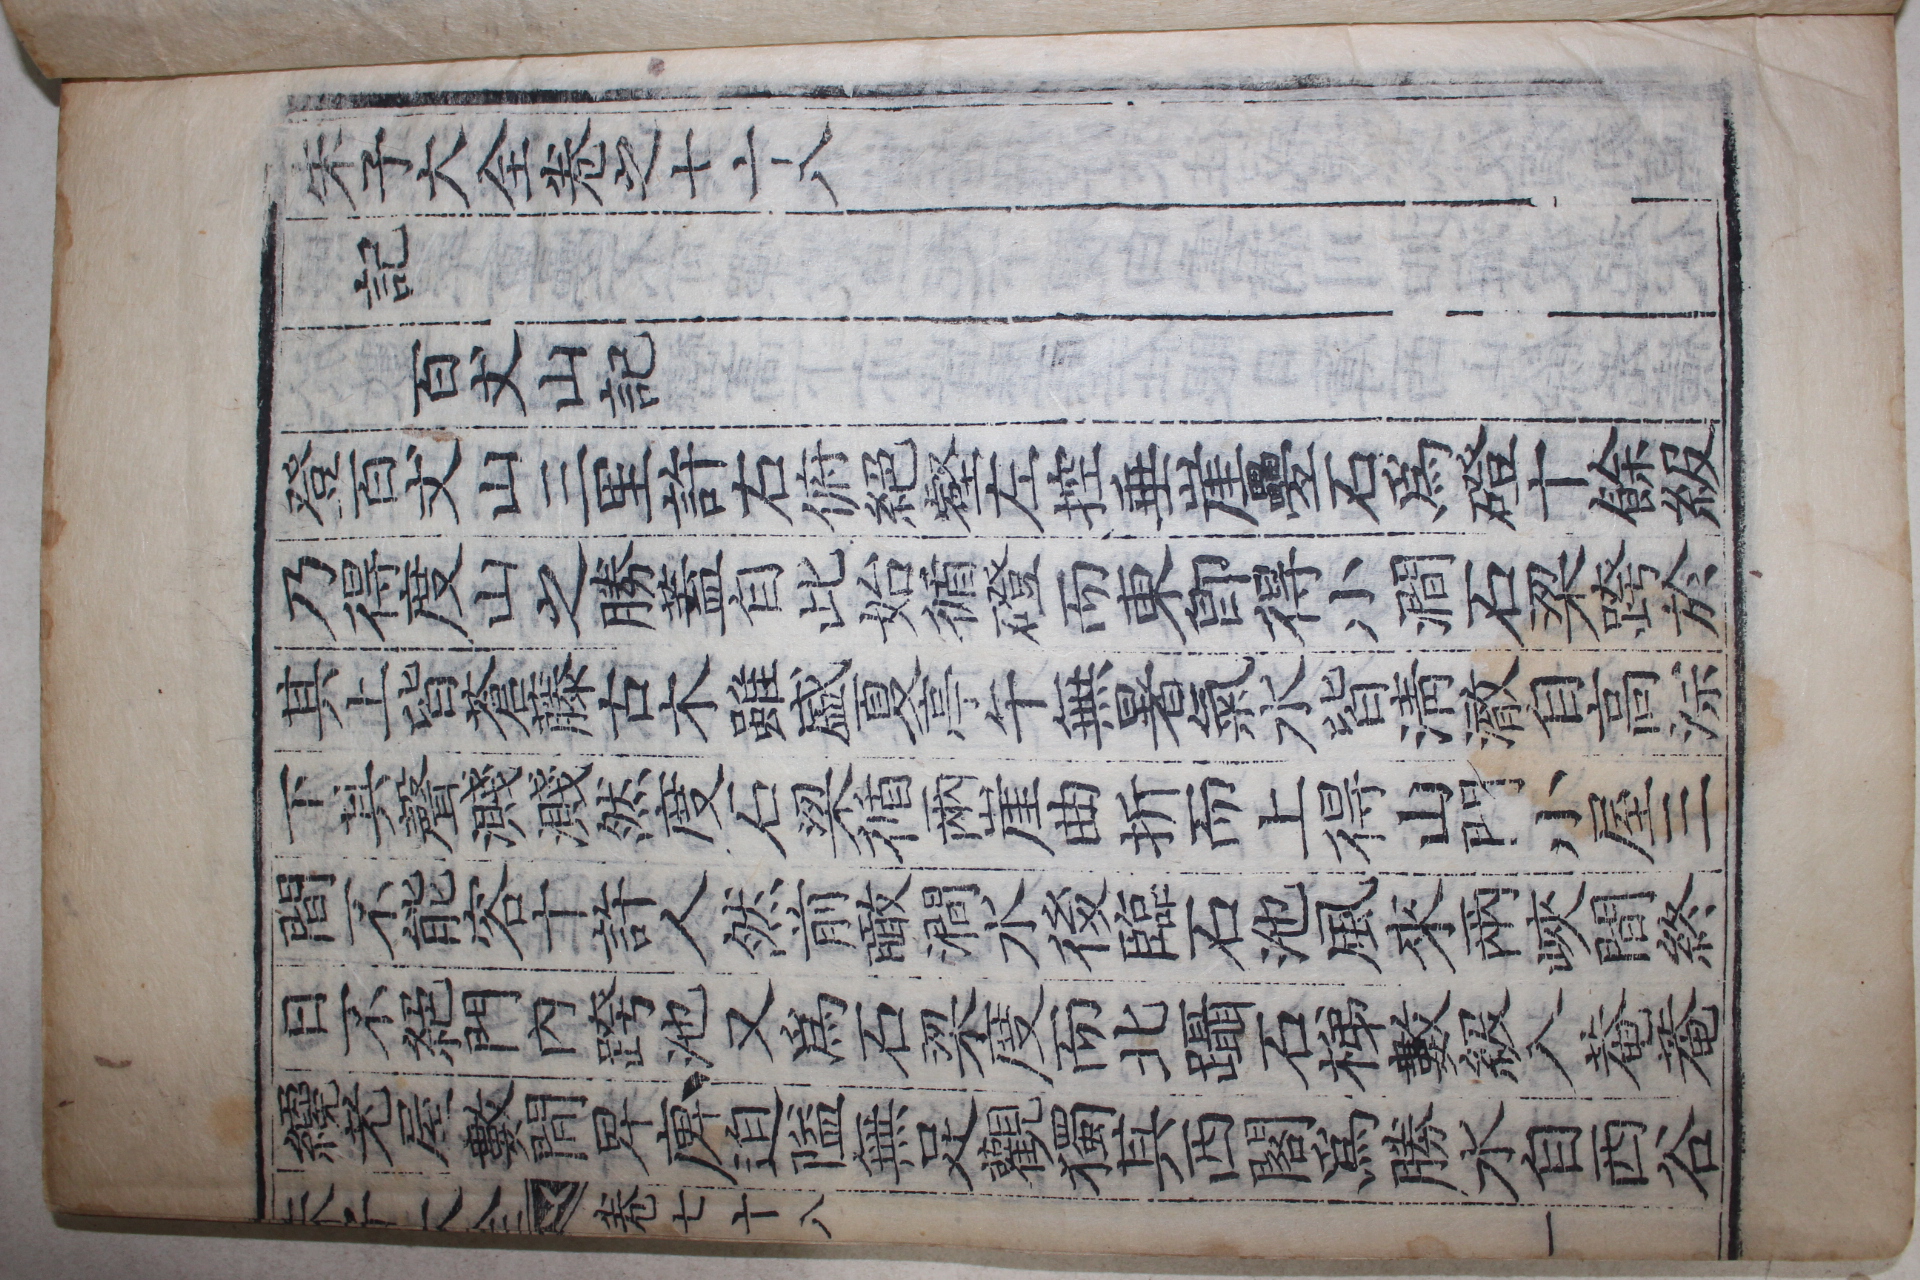 朱子大全卷之七十八
記
百丈山記
登百丈山三里許右俯絕壑左控垂崖疊石爲磴十餘級
乃得度山之勝蓋自此始循磴而東卽得小澗石梁跨於
其上皆蒼藤古木雖盛夏亭午無暑氣水皆清澈自高淙
下其聲濺濺然度石梁循兩崖曲折而上得山門小屋三
間不能容十許人然前瞰澗水後臨石池風來兩峽間終
日不絕門內跨池又爲石梁度而北躡石梯數級入菴菴
纔老屋數間卑庳迫隘無足觀獨其西閣爲勝水自西谷
朱子大全 卷七十八 一